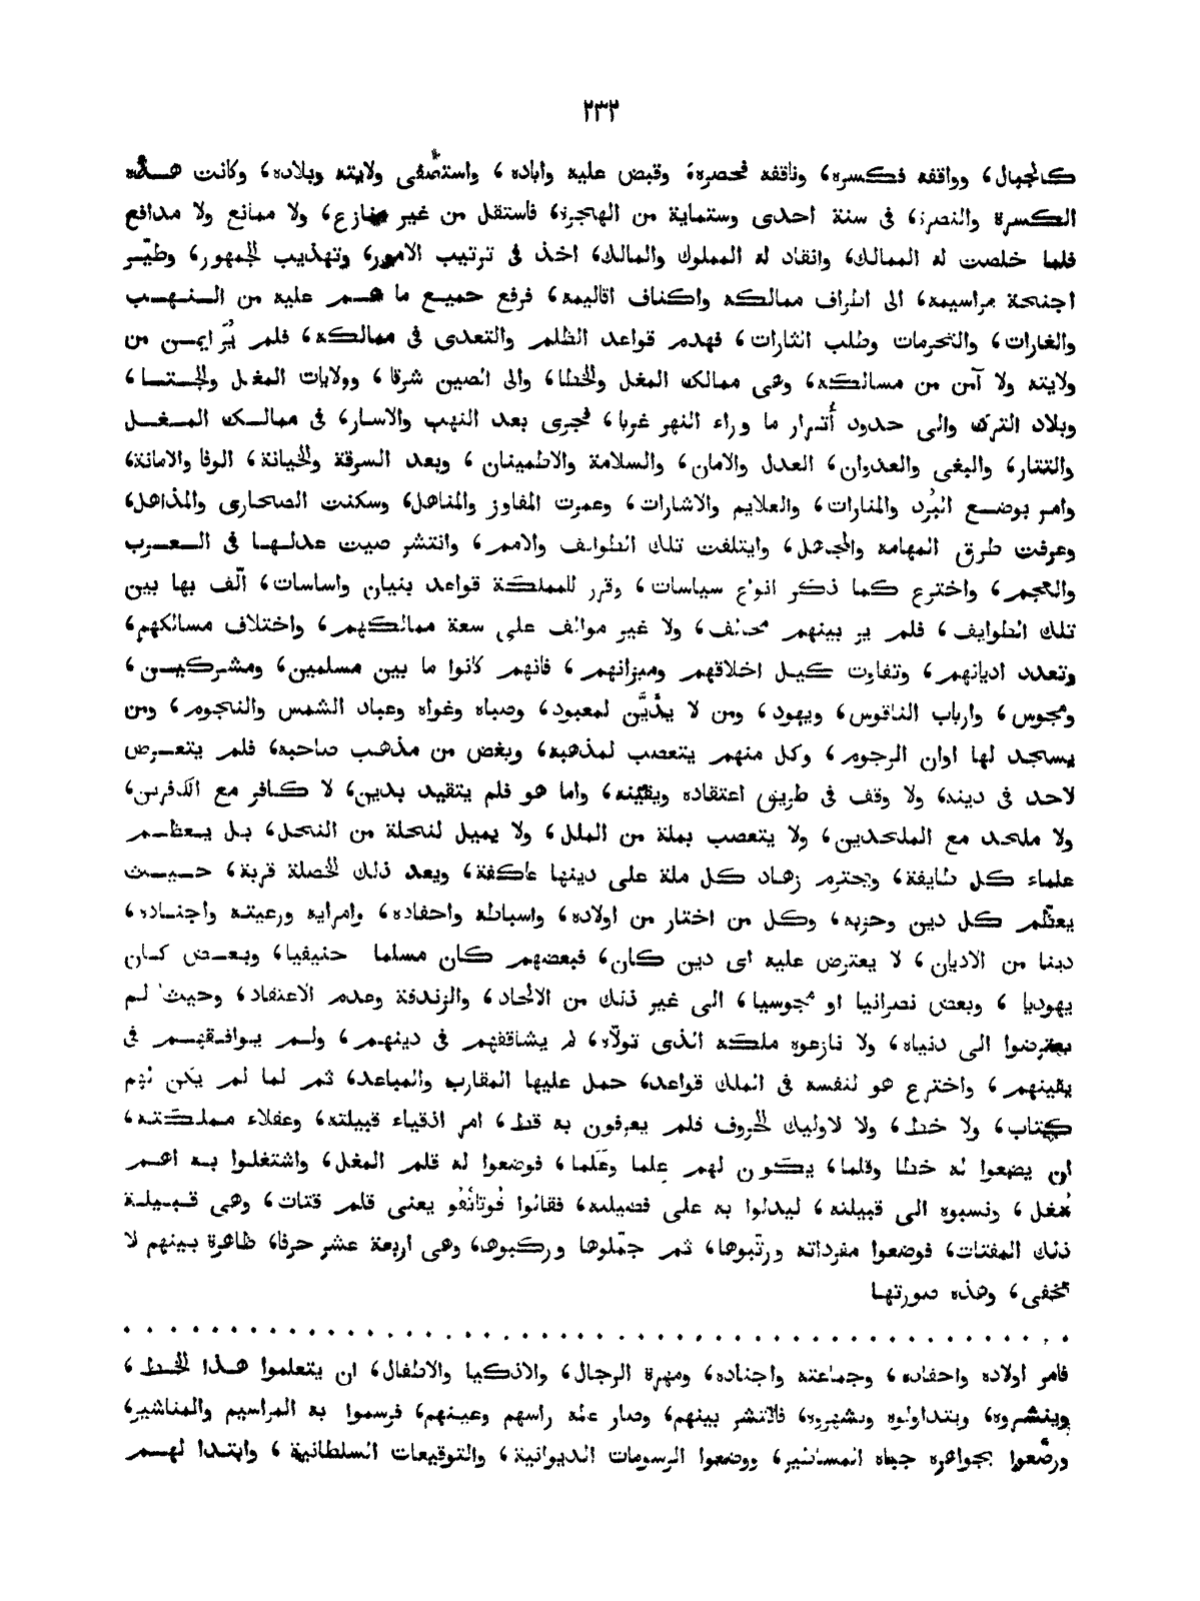 ٢٣٢
كالجبال، وواقفه فكسره، وناقفه فحصره، وقبض عليه واباده، واستصفى ولايته وبلاده، وكانت هذه
الكسرة والنصرة، فى سنة احدى وستماية من الهجرة، فاستقل من غير منازع، ولا ممانع ولا مدافع
فلما خلصت له الممالك، وانقاد له المملوك والمالك، اخذ فى ترتيب الامور، وتهذيب الجمهور، وطيّر
اجنحة مراسيمه، الى اطراف ممالكه واكناف اقاليمه، فرفع جميع ما هم عليه من النهب
والغارات، والتحرمات وطلب الثارات، فهدم قواعد الظلم والتعدى فى ممالكه، فلم يُرَ ايمن من
ولايته ولا آمن من مسالكه، وهى ممالك المغل والخطا، والى الصين شرقا، وولايات المغل والجتا،
وبلاد الترك والى حدود أُترار ما وراء النهر غربا، فجرى بعد النهب والاسار، فى ممالك المغل
والتتار، والبغى والعدوان، العدل والامان، والسلامة والاطمينان، وبعد السرقة والخيانة، الوفا والامانة،
وامر بوضع البُرد والمنارات، والعلايم والاشارات، وعمرت المفاوز والمناهل، وسكنت الصحارى والمذاهل،
وعرفت طرق المهامه والمجاهل، وايتلفت تلك الطوايف والامم، وانتشر صيت عدلها فى العرب
والعجم، واخترع كما ذكر انواع سياسات، وقرر للمملكة قواعد بنيان واساسات، الّف بها بين
تلك الطوايف، فلم ير بينهم مخالف، ولا غير موالف على سعة ممالكهم، واختلاف مسالكهم،
وتعدد اديانهم، وتفاوت كيل اخلاقهم وميزانهم، فانهم كانوا ما بين مسلمين، ومشركين،
ومجوس، وارباب الناقوس، ويهود، ومن لا يدّيّن لمعبود، وصباه وغواه وعباد الشمس والنجوم، ومن
يسجد لها اوان الرجوم، وكل منهم يتعصب لمذهبه، وبغص من مذهب صاحبه، فلم يتعرض
لاحد فى دينه، ولا وقف فى طريق اعتقاده ويقينه، واما هو فلم يتقيد بدين، لا كافر مع الكافرين،
ولا ملحد مع الملحدين، ولا يتعصب بملة من الملل، ولا يميل لنحلة من النحل، بل يعظم
علماء كل طايفة، ويحترم زهاد كل ملة على دينها عاكفة، ويعد ذلك الخصلة قربة، حيث
يعظّم كل دين وحزبه، وكل من اختار من اولاده، واسباطه واحفاده، وامرايه ورعيته واجناده،
دينا من الاديان، لا يعترض عليه اى دين كان، فبعضهم كان مسلما حنيفيا، وبعض كان
يهوديا، وبعض نصرانيا او مجوسيا، الى غير ذلك من الالحاد، والزندقة وعدم الاعتقاد، وحيث لم
يعترضوا الى دنياه، ولا نازعوه ملكه الذى تولّاه، لم يشاققهم فى دينهم، ولم يوافقهم فى
يقينهم، واخترع هو لنفسه فى الملك قواعد، حمل عليها المقارب والمباعد، ثم لما لم يكن لهم
كتاب، ولا خط، ولا لاوليك الحروف فلم يعرفون به قط، امر اذقياء قبيلته، وعقلاء مملكته،
ان يضعوا له خطا وقلما، يكون لهم عِلما وعَلما، فوضعوا له قلم المغل، واشتغلوا به اهم
شغل، ونسبوه الى قبيلته، ليدلوا به على فضيلته، فقالوا قُوتاتْقُو يعنى قلم قتات، وهى قبيلة
ذلك المفتات، فوضعوا مفرداته ورتّبوها، ثم جمّلوها وركبوها، وهى اربعة عشر حرفا، ظاهرة بينهم لا
تخفى، وهذه صورتها
فامر اولاده واحفاده، وجماعته واجناده، ومهرة الرجال، والاذكيا والاطفال، ان يتعلموا هذا الخط،
وينشروه، ويتداولوه ويشهروه، فانتشر بينهم، وصار علم راسهم وعينهم، فرسموا به المراسيم والمناشير،
ورصّعوا بجواهره جباه المساشير، ووضعوا الرسومات الديوانية، والتوقيعات السلطانية، وابتدا لهم